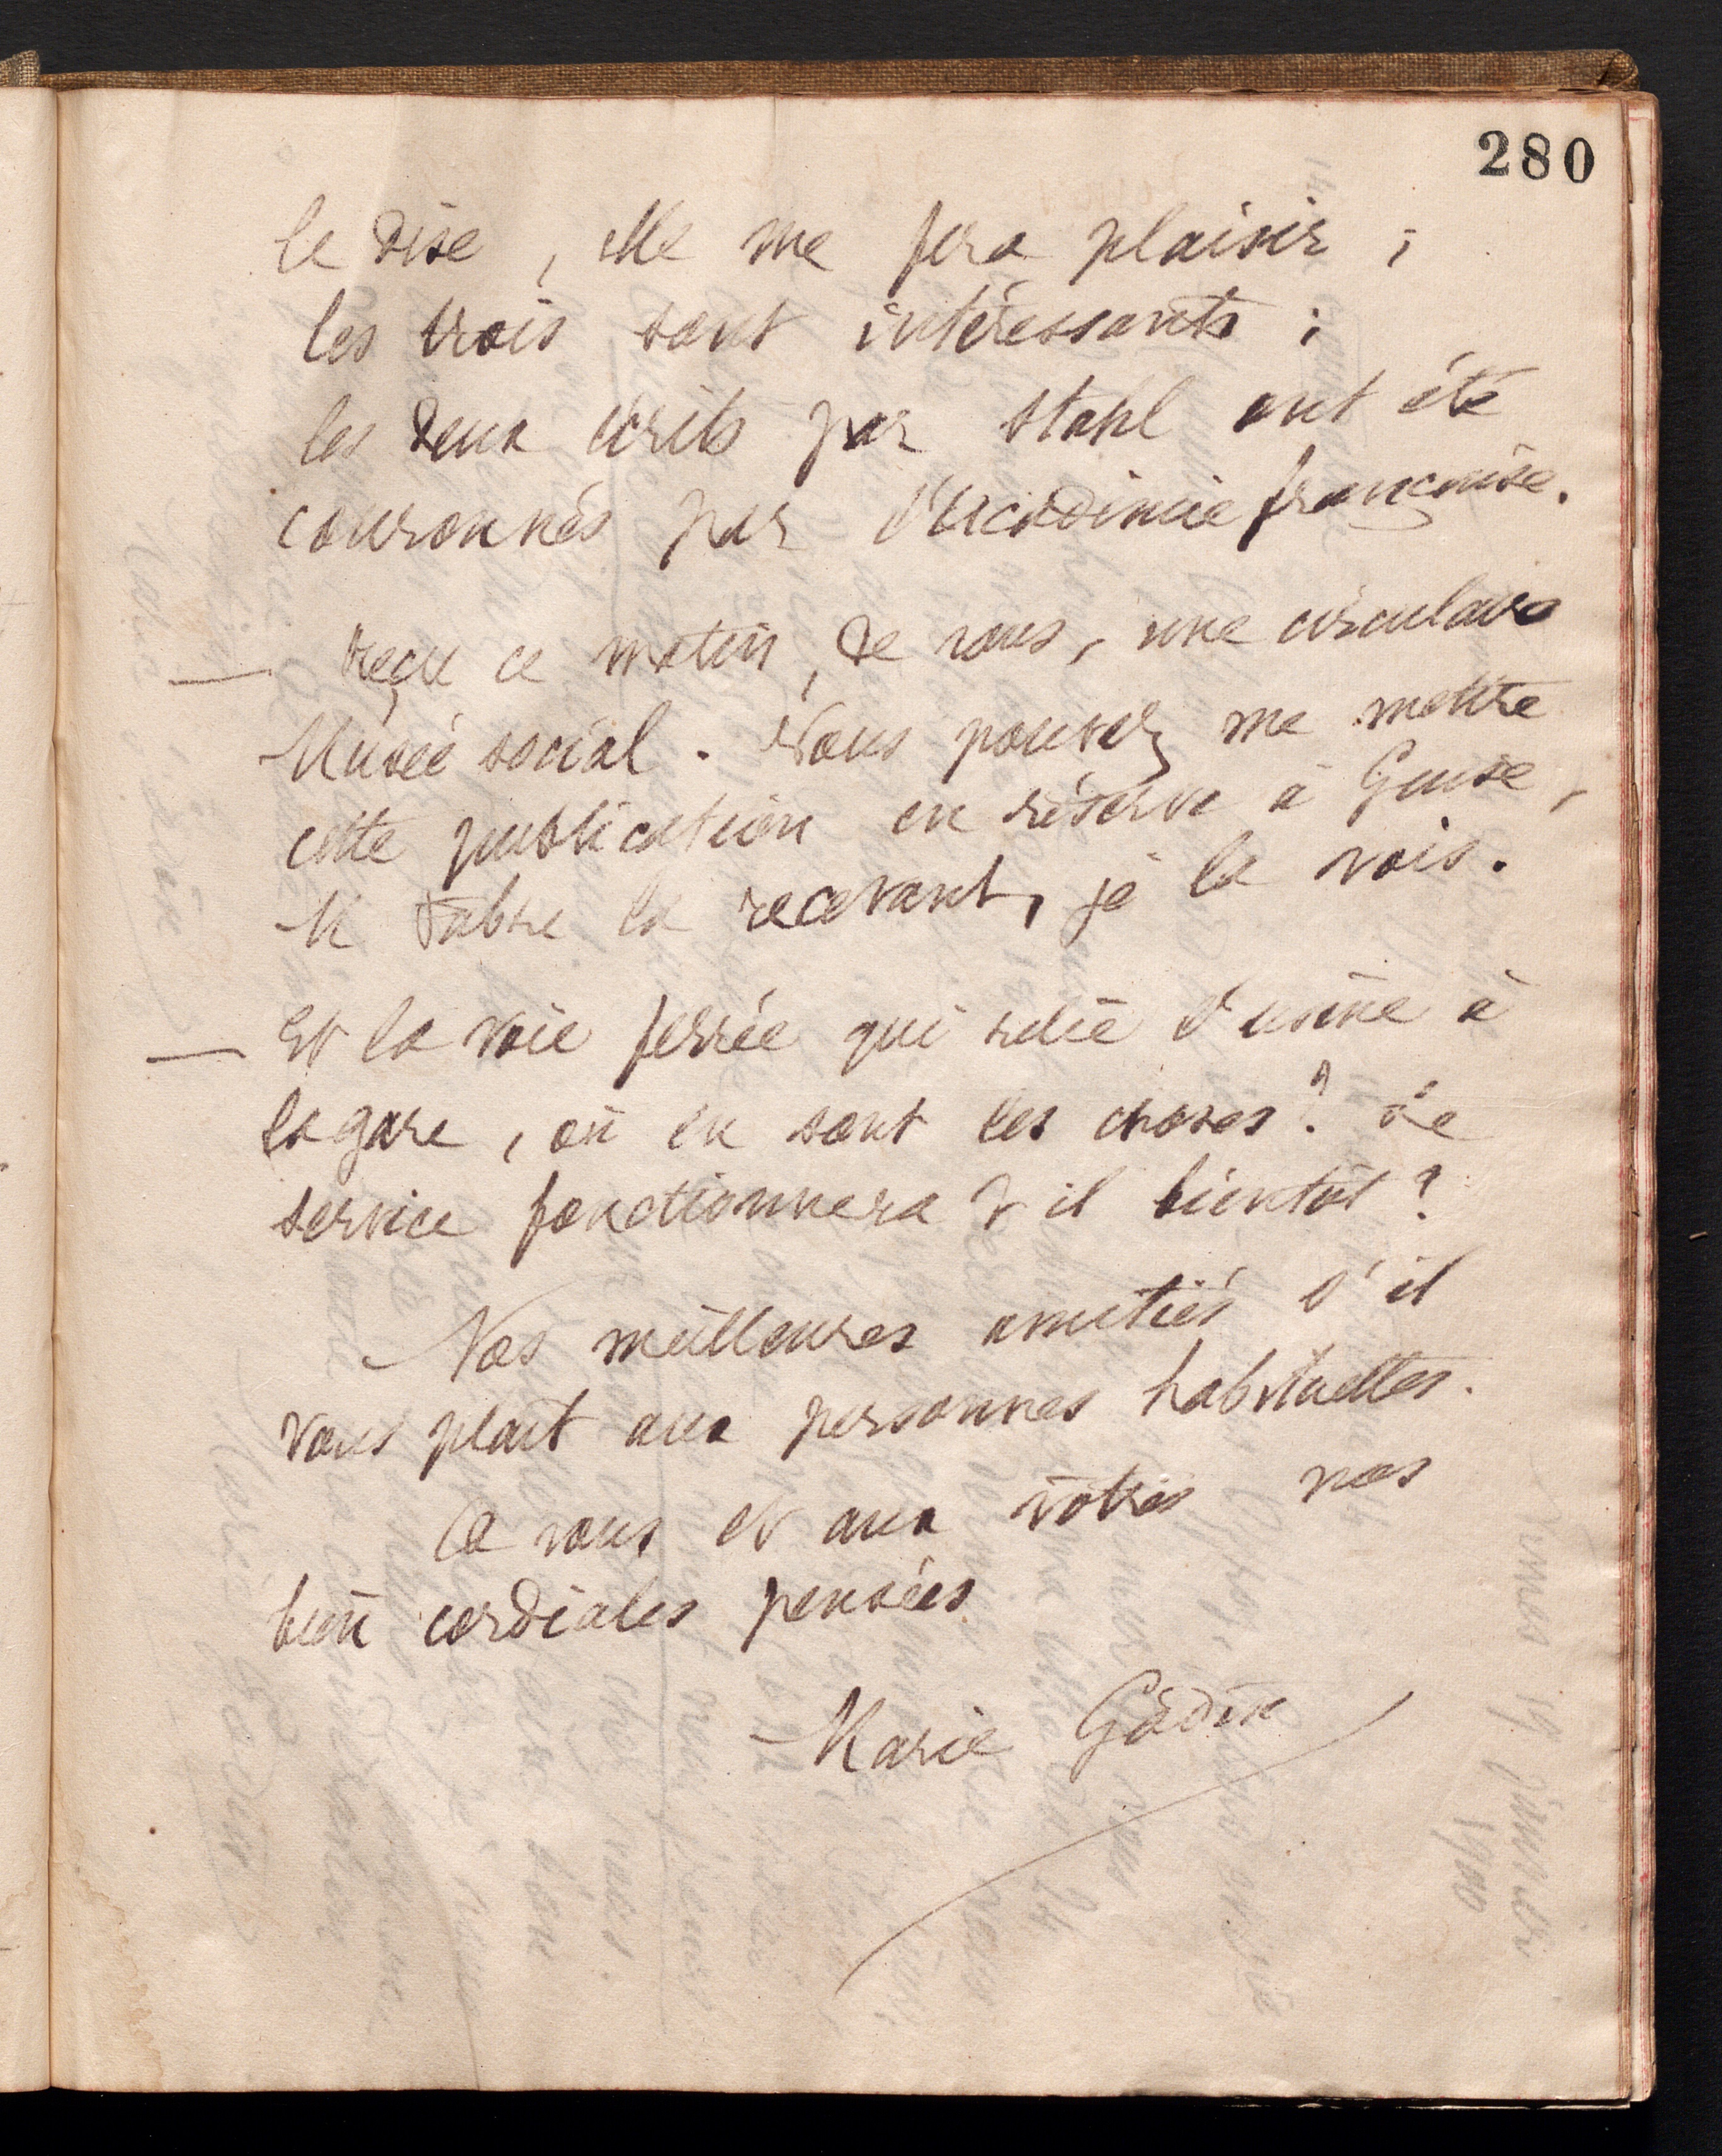 280
le dise, elle me fera plaisir ;
les trois sont intéressants ;
les deux écrits par Stahl ont été
couronnés par l'Académie française.
— Reçu ce matin, de vous, une circulaire
Musée social. Vous pouvez me mettre
cette publication en réserve à Guise,
M Fabre la recevant, je la vois.
— Et la voie ferrée qui relie l'usine à
la gare, où en sont les choses ? Le
service fonctionnera t il bientôt ?
Nos meilleures amitiés s'il
vous plait aux personnes habituelles.
A vous et aux vôtres nos
bien cordiales pensées
Marie Godin